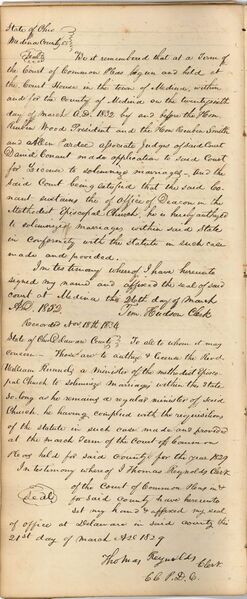 State of Ohio
Medina County, SS
Seal
Be it remembered that at a Term of
the Court of Common Pleas begun and held at
the Court House in the town of Medina, within
and for the County of Medina on the twenty sixth
day of march A.D. 1832 by and before the Hon.
Reuben Wood President and the Hon Smith
and Allen Pardee associate Judges of said Court
David Conant made application to said Court
for License to solemnize marriages, and the
said Court being satisfied that the said Co-
nant sustains the of Office of Deacon in the
Methodist Episcopal Church, he is hereby authorized
to solemnize marriages within said State
in conformity with the Statute in such case
made and provided.
In testimony whereof I have hereunto
signed my name and affixed the seal of said
court at Medina the 26th day of March
A.D. 1832. Tim Hudson Clerk
Recorded Nov. 18th 1834
State of Ohio Delaware County To all to whom it may
concern. These are to author & license the Revd.
William Kennedy a Minister of the methodist Episco-
pal Church to solemnize marriages within the State.
so long as he remains a regular minister of said
Church, he having complied with the requisitions
of the statute in such case made and provided
at the march Term of the Court of Common
Pleas held for said County for the year 1829
In testimony whereof I Thomas Reynolds Clerk
Seal
of the Court of Common Pleas in &
for said county have hereunto
set my hand & affixed my seal
of office at Delaware in said county this
21st day of march A.D. 1829
Thomas Reynolds Clerk
C.C.P.D.C.